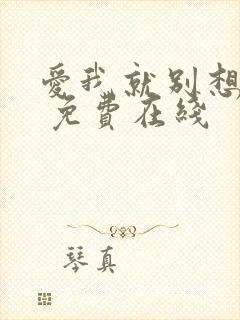 愛我就別想
免費在綫
琴真